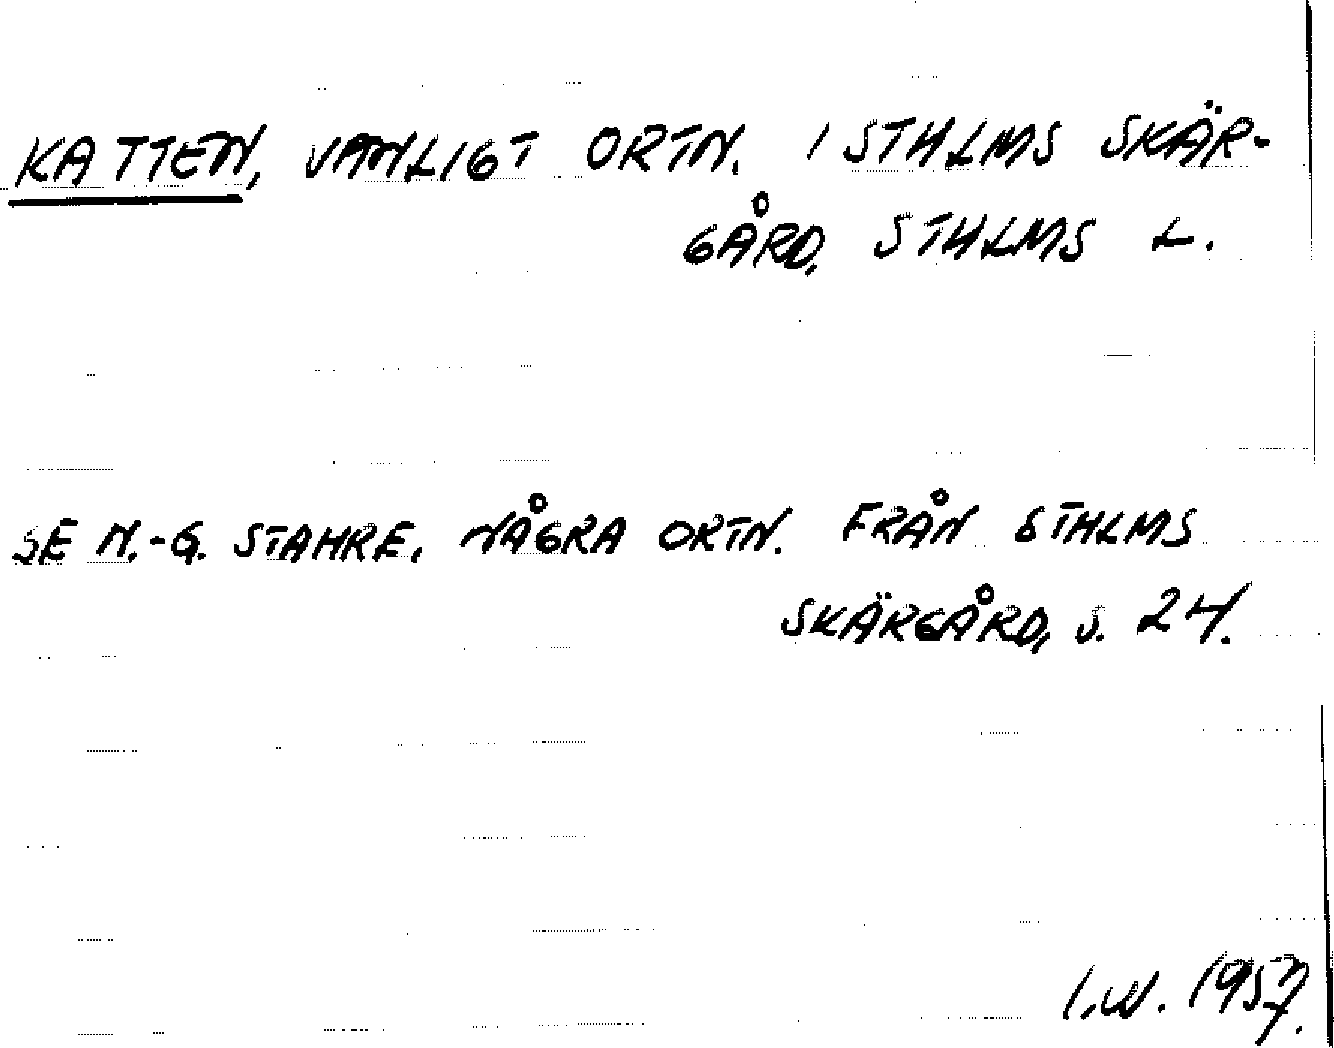 KATTEN, VANLIGT ORTN. I STHLMS SKÄR-
GÅRD, STHLMS L.
SE N.-G. STAHRE, NÅGRA ORTN. FRÅN STHLMS
SKÄRGÅRD, S. 24.
I.W. 1957.